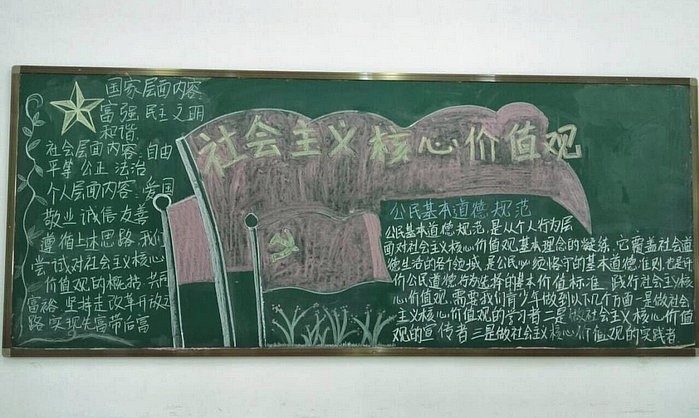 国家层面内容
富强 民主 文明
和谐
社会层面内容:自由
平等 公正 法治
个人层面内容:爱国
敬业 诚信 友善
遵循上述思路,我们
尝试对社会主义核心
价值观的概括 共同
富裕 坚持主改革开放之
路 实现先富带后富
社会主义核心价值观
公民基本道德规范
公民基本道德规范,是从个人行为层
面对社会主义核心价值观基本理念的凝练,它覆盖社会道
德生活的各个领域,是公民必须恪守的基本道德准则,也是评
价公民道德行为选择的基本价值标准 践行社会主义核
心价值观,需要我们青少年做到以下几个方面一是做社会
主义核心价值观的学习者二是做社会主义核心价值
观的宣传者三是做社会主义核心价值观的实践者